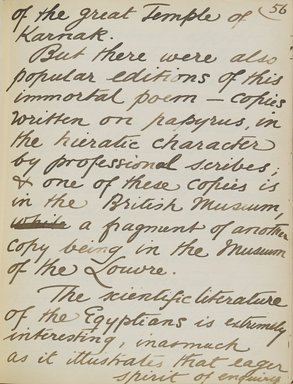 56
of the great Temple of
Karnak.
But there were also
popular editions of this
immortal poem — copies
written on papyrus, in
the hieratic character
by professional scribes;
& one of these copies is
in the British Museum,
while a fragment of another
copy being in the Museum
of the Louvre.
The scientific literature
of the Egyptians is extremely
interesting, inasmuch
as it illustrates that eager
spirit of enquiry